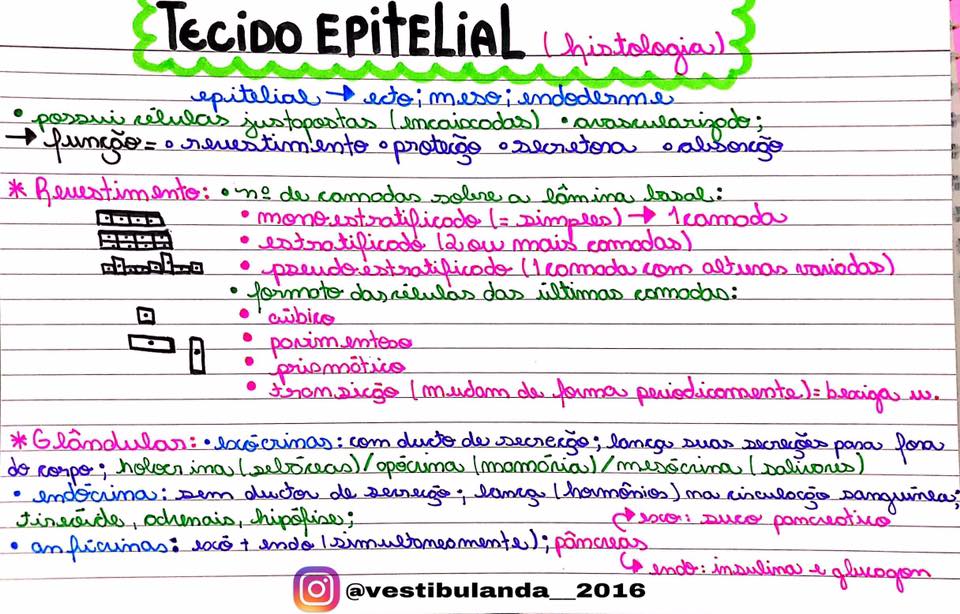 TECIDO EPITELIAL (histologia)
epitelial → ecto; meso; endoderme
• possui células justapostas (encaixadas) • avascularizado;
→ função = • revestimento • proteção • secretora • absorção
* Revestimento: • nº de camadas sobre a lâmina basal:
• monoestratificado (= simples) → 1 camada
• estratificado (2 ou mais camadas)
• pseudoestratificado (1 camada com alturas variadas)
• formato das células das últimas camadas:
• cúbico
• pavimentoso
• prismático
• transicção (mudam de forma periodicamente) = bexiga u.
* Glândular: • exócrinas: com ducto de secreção; lança suas secreções para fora
do corpo; holócrina (sebáceas) / apócrina (mamária) / mesócrina (salivares)
• endócrina: sem ductor de secreção; lança (hormônios) na circulação sanguínea;
tireóide, adrenais, hipófise;
↱ exo: suco pancreatico
• anfícrinas: exó + endo (simultaneamente); pâncreas
↳ endo: insulina e glucagon
@vestibulanda__2016